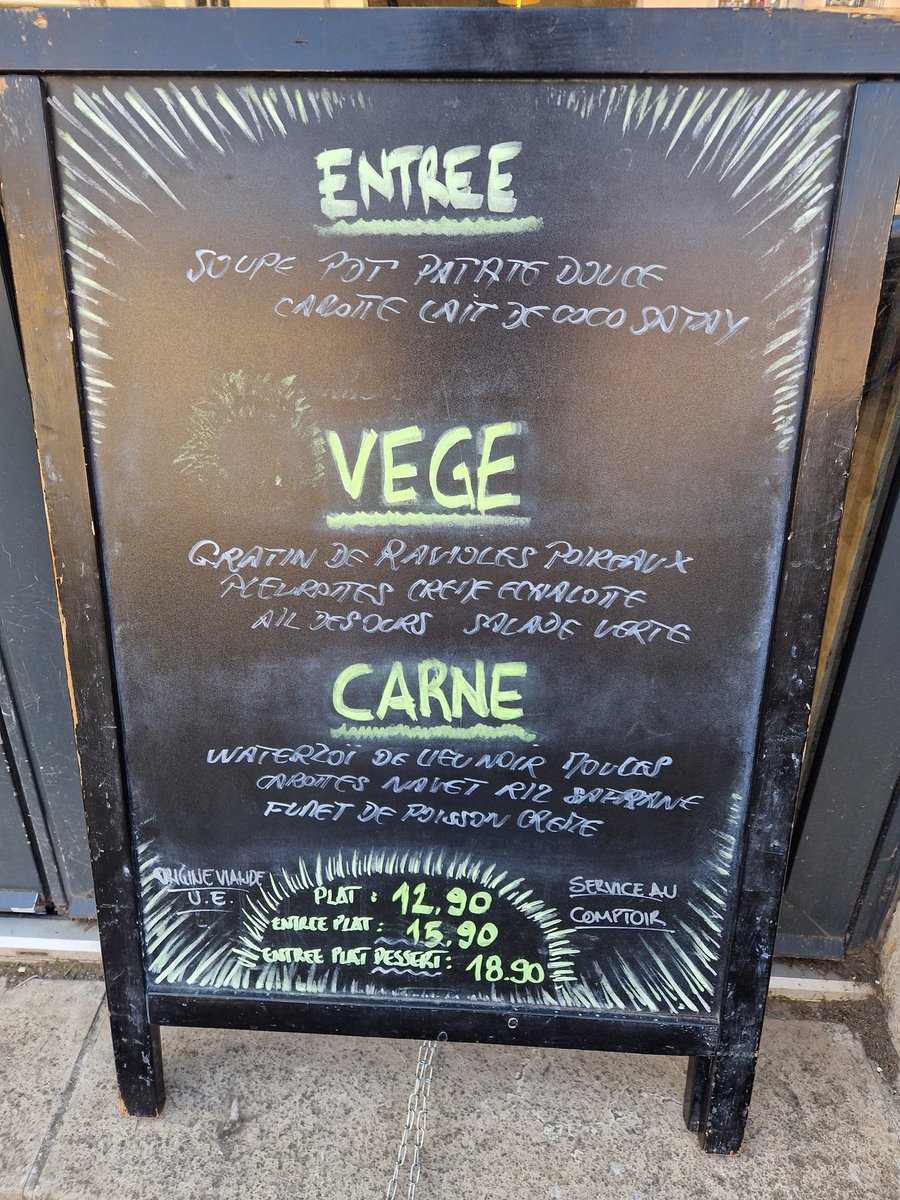 ENTREE
SOUPE POT PATATE DOUCE
CAROTTE LAIT DE COCO SATAY
VEGE
GRATIN DE RAVIOLES POIREAUX
PLEUROTTES CREME ECHALOTTE
AIL DES OURS SALADE VERTE
CARNE
WATERZOÏ DE LIEU NOIR MOULES
CAROTTES NAVET RIZ SAFRANE
FUMET DE POISSON CREME
ORIGINE VIANDE
U.E.
PLAT : 12,90
ENTREE PLAT : 15,90
ENTREE PLAT DESSERT : 18.90
SERVICE AU
COMPTOIR